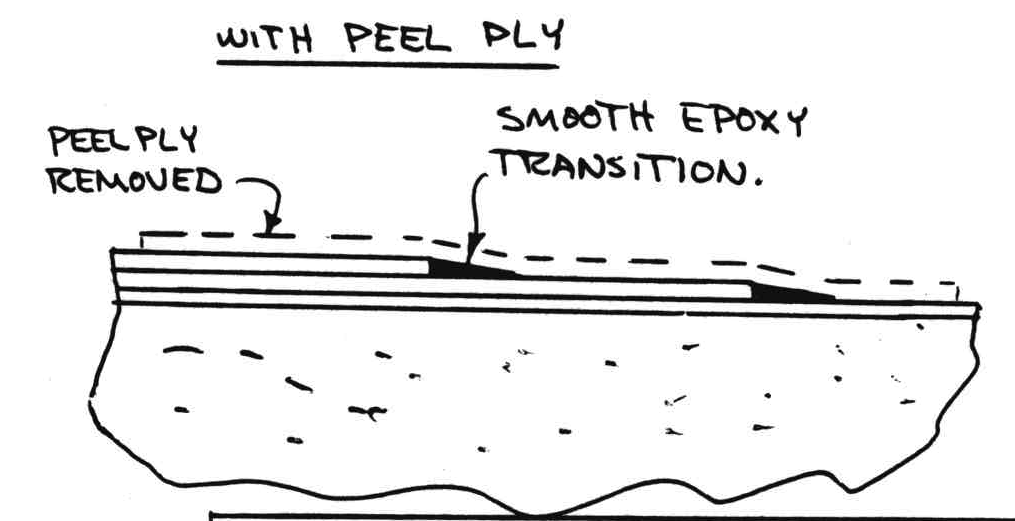 WITH PEEL PLY
PEEL PLY
REMOVED
SMOOTH EPOXY
TRANSITION.